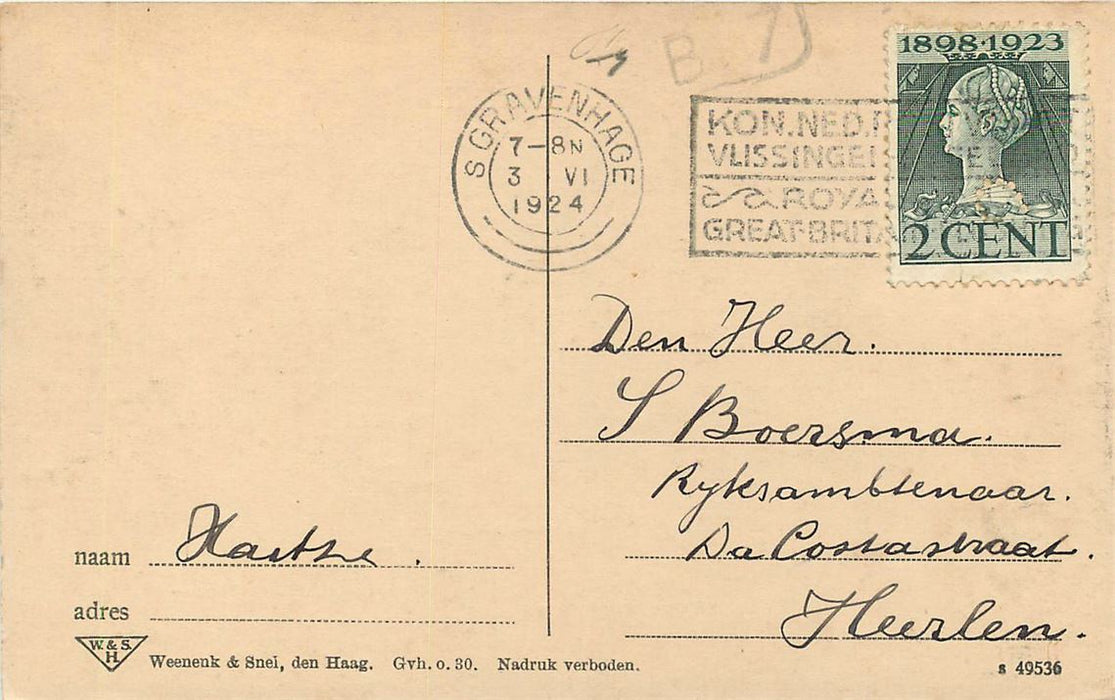 B. 7
1898·1923
S GRAVENHAGE
7-8N
3 VI
1924
KON.NED.
VLISSINGEN
ROYAL
GREAT-BRITAIN
2 CENT
Den Heer.
S Boersma.
Ryksambtenaar.
Da Costastraat.
Heerlen.
naam
adres
W. & S.
H.
Weenenk & Snel, den Haag. Gvh. o. 30. Nadruk verboden.
s 49536